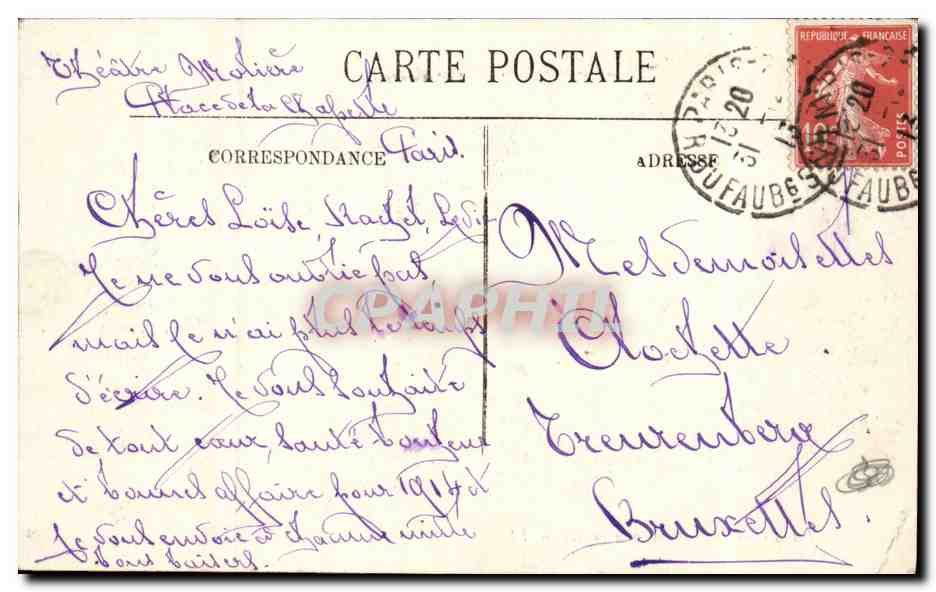 Théâtre Molière
Place de la Chapelle
Paris.
CARTE POSTALE
CORRESPONDANCE
ADRESSE
REPUBLIQUE FRANÇAISE
POSTES
10
PARIS
13 20
31
12
13
R. DU FAUBG ST
Chères Loïse, Rachel,
Je ne vous oublie pas
mais je n'ai plus le temps
d'écrire. Je vous souhaite
de tout cœur, santé bonheur
et bonnes affaire pour 1914 et
je vous envoie a chacune mille
bons baisers.
Mesdemoiselles
Clochette
Treurenberg
Bruxelles.
CPAPHIL